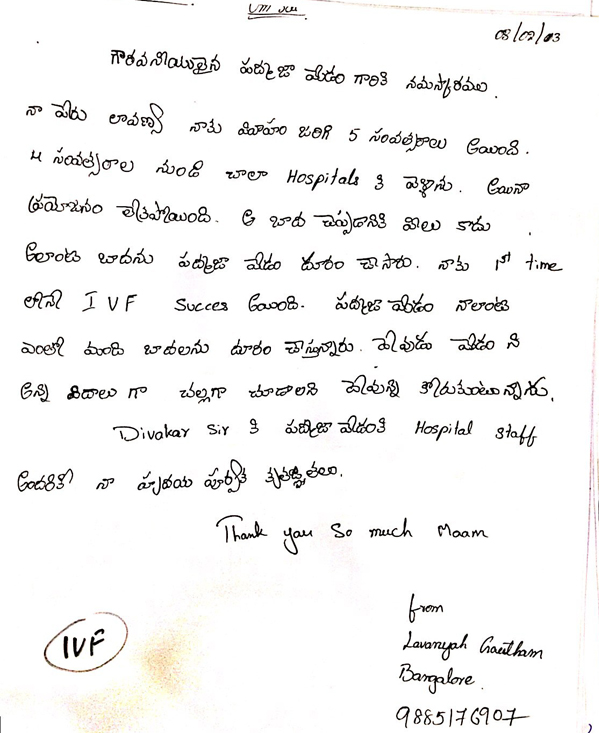 08/02/23
గౌరవనీయులైన పద్మజా మేడం గారికి నమస్కారములు.
నా పేరు లావణ్య నాకు వివాహం జరిగి 5 సంవత్సరాలు అయింది.
4 సంవత్సరాల నుండి చాలా Hospitals కి వెళ్ళాను. అయినా
ప్రయోజనం లేకపోయింది. ఆ బాద చెప్పడానికి వీలు కాదు
అలాంటి బాదను పద్మజా మేడం దూరం చేసారు. నాకు 1st time
లోనే IVF Succes అయింది. పద్మజా మేడం నాలాంటి
ఎంతో మంది బాదలను దూరం చేస్తున్నారు. దేవుడు మేడం ని
అన్ని విదాలు గా చల్లగా చూడాలని దేవున్ని కోరుకుంటున్నాను.
Divakar Sir కి పద్మజా మేడంకి Hospital Staff
అందరికి నా హృదయ పూర్వక కృతజ్ఞతలు.
Thank you So much Maam
from
Lavanyah Gautham
Bangalore.
9885176907
IVF